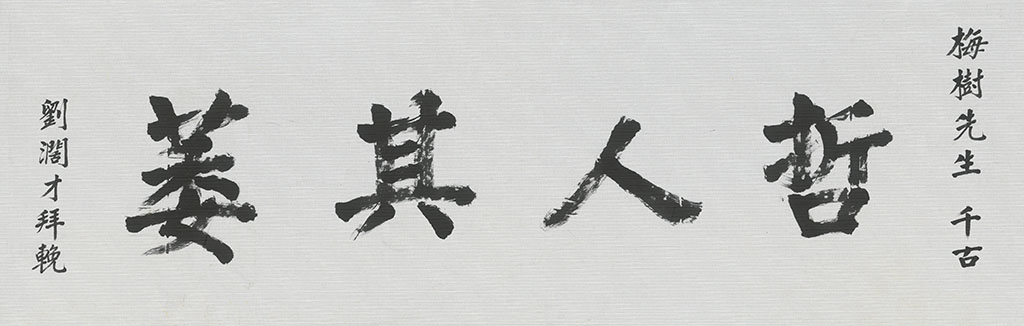 梅樹先生 千古
哲人其萎
劉濶才拜輓